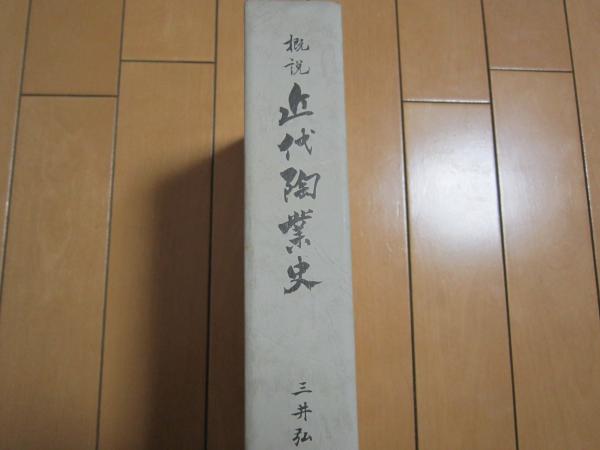 概説
近代陶業史
三井弘